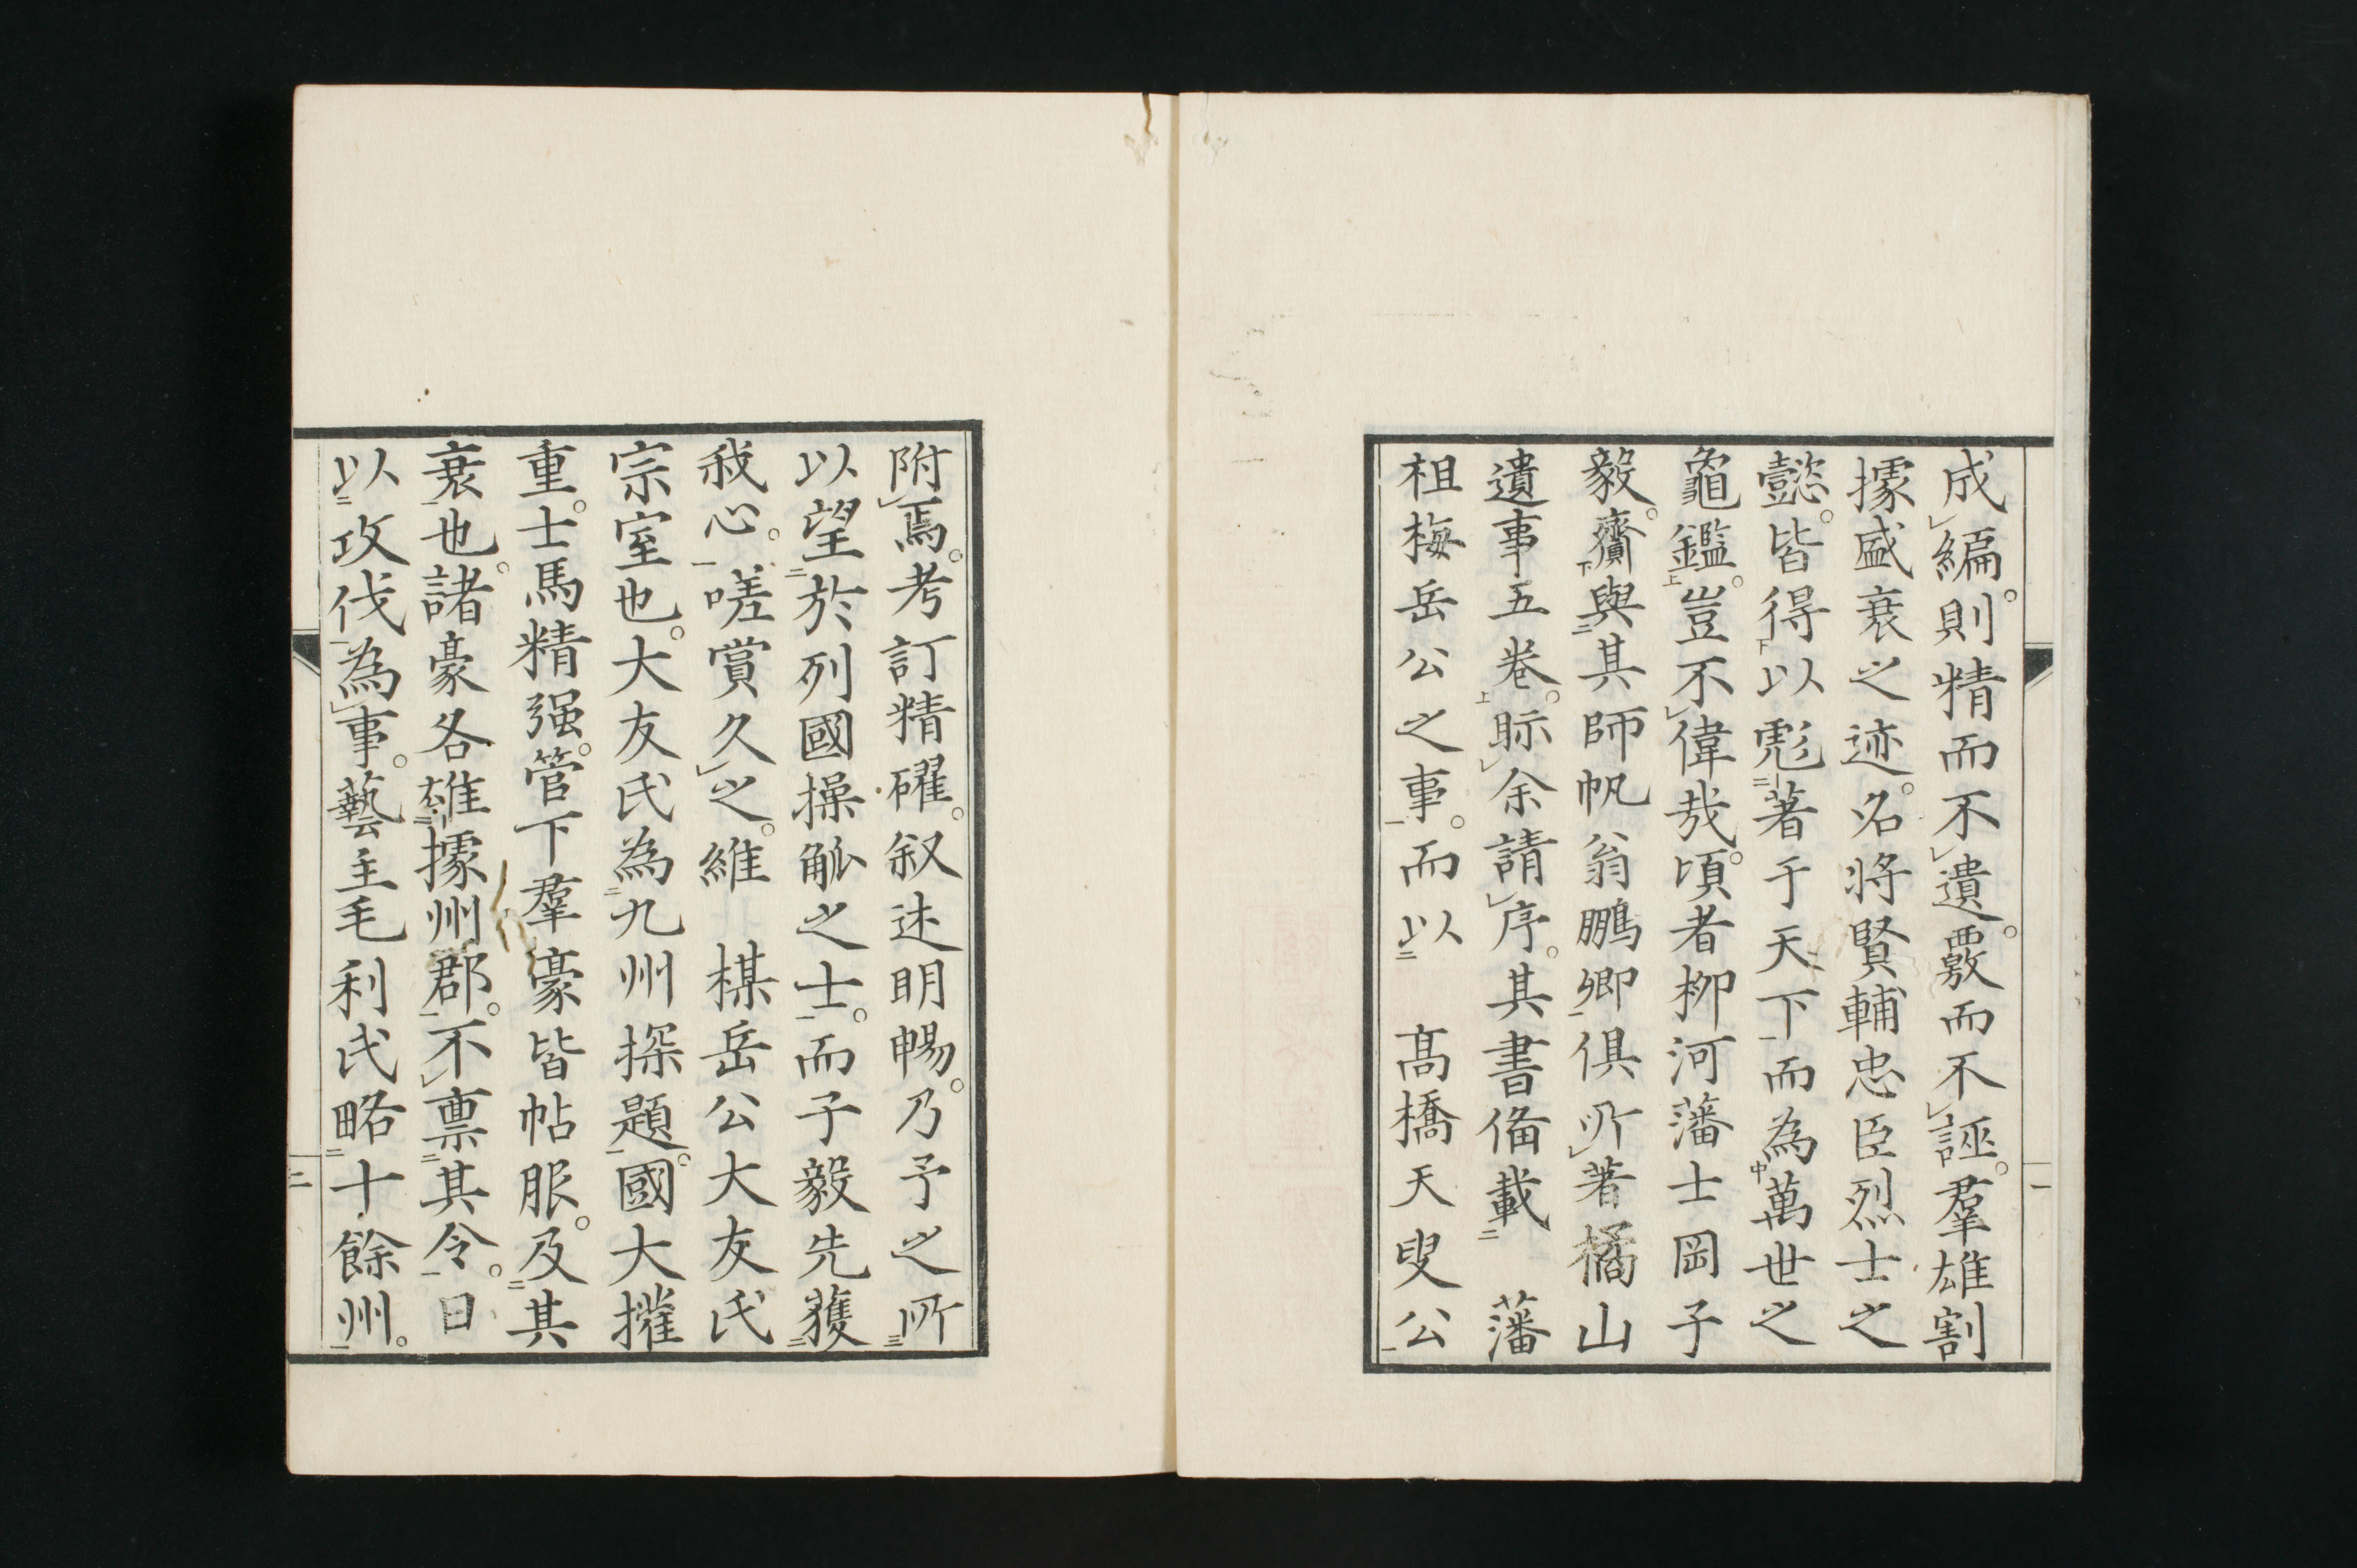 成編。則精而不遺。覈而不誣。羣雄割
據盛衰之迹。名将賢輔忠臣烈士之
懿。皆得以彪著于天下而為萬世之
龜鑑。豈不偉哉。頃者柳河藩士岡子
毅。齎與其師帆翁鵬卿俱所著橘山
遺事五巻。眎余請序。其書俻載　藩
祖梅岳公之事。而以　髙橋天叟公
附焉。考訂精確。叙述明暢。乃予之所
以望於列國操觚之士。而子毅先獲
我心。嗟賞久之。維　楳岳公大友氏
宗室也。大友氏為九州探題。國大權
重。士馬精强。管下羣豪皆帖服。及其
衰也。諸豪各雄據州郡。不禀其令。日
以攻伐為事。藝主毛利氏略十餘州。